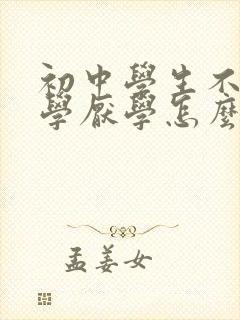 初中學生不
學厭學怎麼
孟姜女